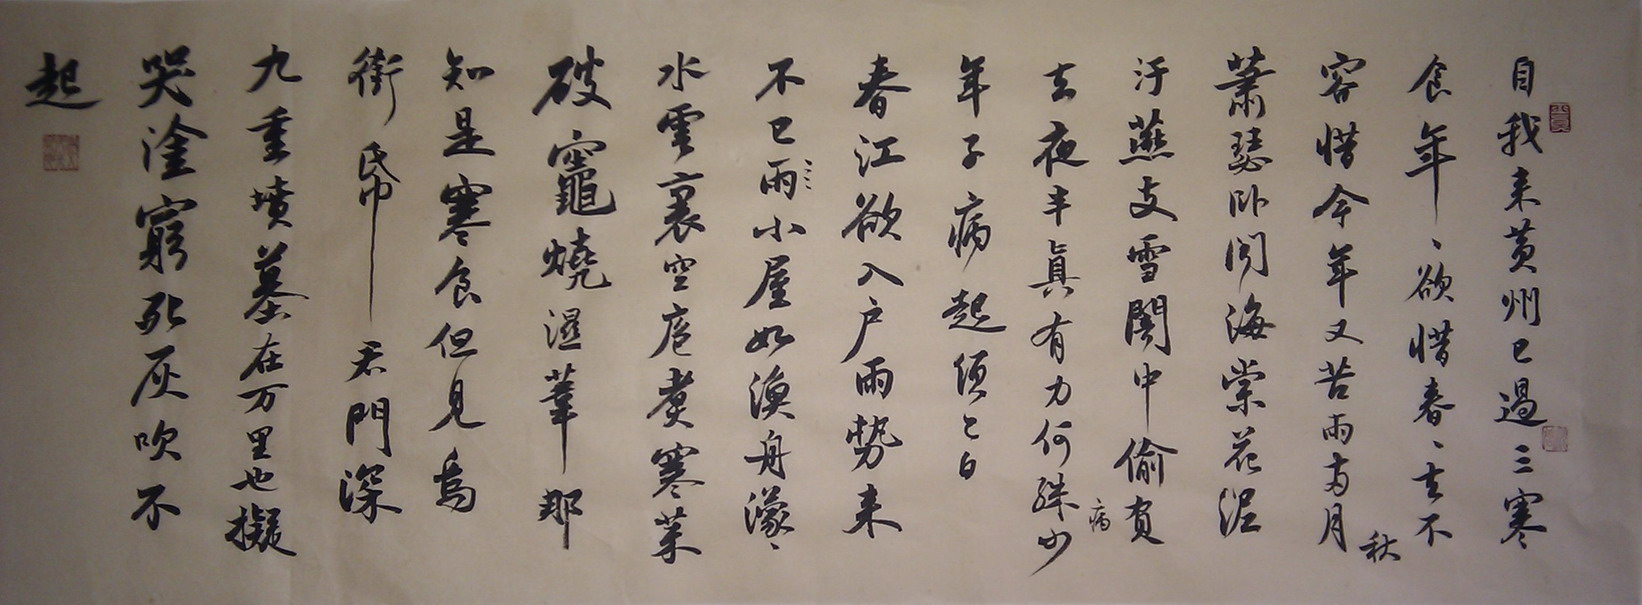 自我来黄州已過三寒
食年〻欲惜春〻去不
容惜今年又苦雨两月秋
蕭瑟卧聞海棠花泥
汙燕支雪闇中偷負
去夜半真有力何殊少病
年子病起須已白
春江欲入户雨勢来
不已雨小屋如漁舟濛〻
水雲裏空庖煮寒菜
破竈燒濕葦那
知是寒食但見烏
銜帋君門深
九重墳墓在万里也擬
哭塗窮死灰吹不
起